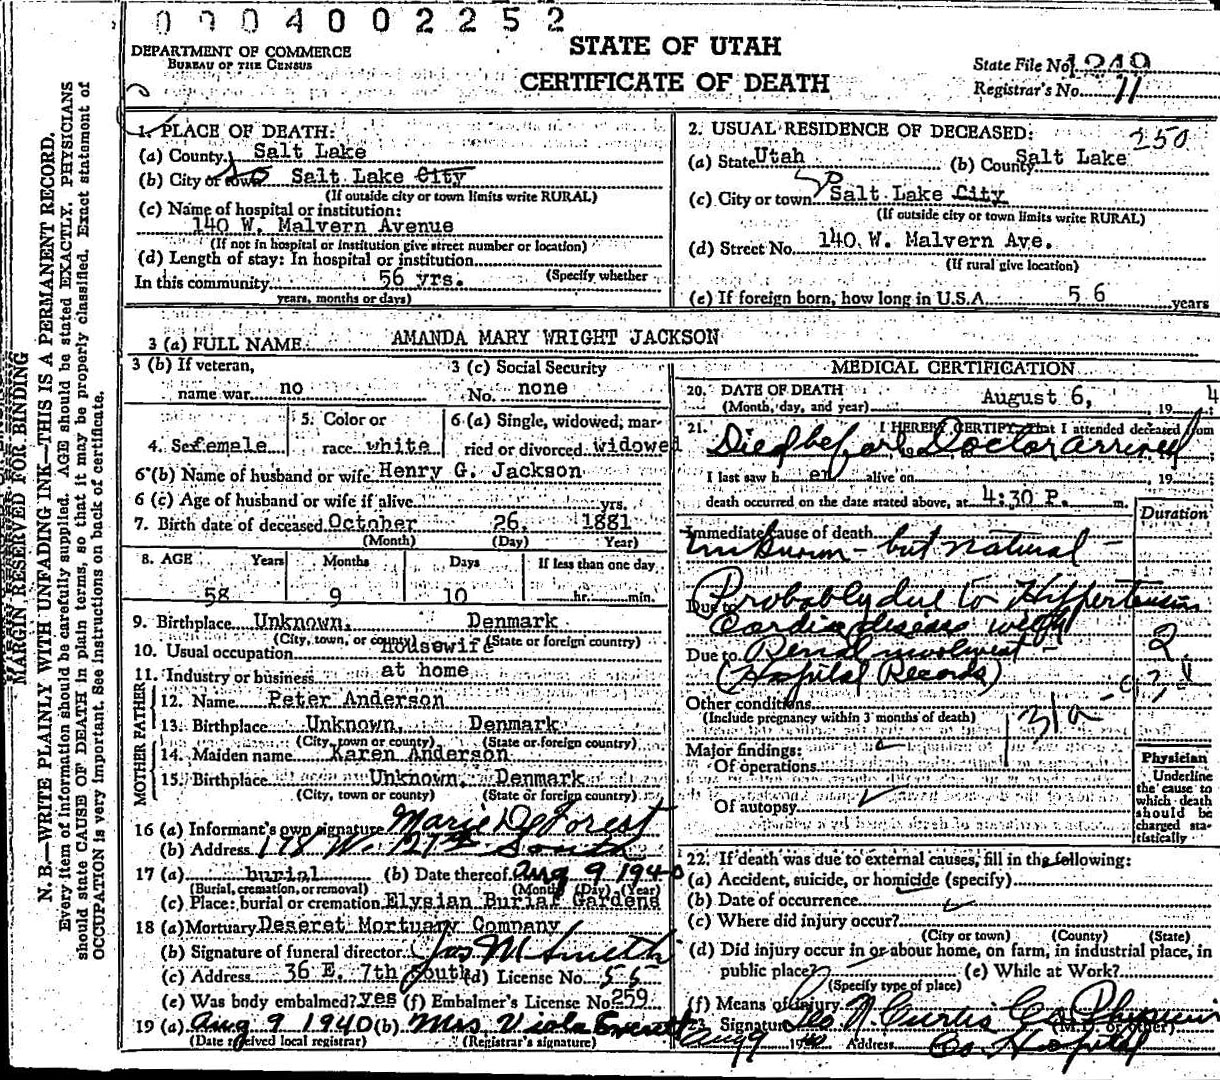 0004002252
DEPARTMENT OF COMMERCE
BUREAU OF THE CENSUS
STATE OF UTAH
CERTIFICATE OF DEATH
State File No.
Registrar's No. 11
MARGIN RESERVED FOR BINDING
N. B.—WRITE PLAINLY WITH UNFADING INK—THIS IS A PERMANENT RECORD.
Every item of information should be carefully supplied. AGE should be stated EXACTLY. PHYSICIANS
should state CAUSE OF DEATH in plain terms, so that it may be properly classified. Exact statement of
OCCUPATION is very important. See instructions on back of certificate.
1. PLACE OF DEATH:
(a) County Salt Lake
(b) City or town So Salt Lake City
(If outside city or town limits write RURAL)
(c) Name of hospital or institution:
140 W. Malvern Avenue
(If not in hospital or institution give street number or location)
(d) Length of stay: In hospital or institution
(Specify whether
In this community 56 yrs.
years, months or days)
2. USUAL RESIDENCE OF DECEASED: 250
(a) State Utah (b) County Salt Lake
(c) City or town So Salt Lake City
(If outside city or town limits write RURAL)
(d) Street No. 140 W. Malvern Ave.
(If rural give location)
(e) If foreign born, how long in U.S.A. 56 years
3 (a) FULL NAME AMANDA MARY WRIGHT JACKSON
3 (b) If veteran,
name war no
3 (c) Social Security
No. none
4. Sex female
5. Color or
race white
6 (a) Single, widowed, mar-
ried or divorced widowed
6 (b) Name of husband or wife Henry G. Jackson
6 (c) Age of husband or wife if alive yrs.
7. Birth date of deceased October 26, 1881
(Month) (Day) Year)
8. AGE Years Months Days If less than one day
58 9 10 hr. min.
9. Birthplace Unknown, Denmark
(City, town, or county) (State or foreign country)
10. Usual occupation housewife
11. Industry or business at home
FATHER
12. Name Peter Anderson
13. Birthplace Unknown, Denmark
(City, town or county) (State or foreign country)
MOTHER
14. Maiden name Karen Anderson
15. Birthplace Unknown, Denmark
(City, town or county) (State or foreign country)
16 (a) Informant's own signature Marie DeForest
(b) Address W. South
17 (a) burial (b) Date thereof Aug 9 1940
(Burial, cremation, or removal) (Month) (Day) (Year)
(c) Place: burial or cremation Elysian Burial Gardens
18 (a) Mortuary Deseret Mortuary Company
(b) Signature of funeral director Jos. M Smith
(c) Address 36 E. 7th South (d) License No. 55
(e) Was body embalmed? yes (f) Embalmer's License No. 259
19 (a) Aug 9 1940 (b) Mrs Viola Everett
(Date received local registrar) (Registrar's signature)
MEDICAL CERTIFICATION
20. DATE OF DEATH August 6, 19 4
(Month, day, and year)
21. I HEREBY CERTIFY That I attended deceased from
Died before Doctor arrived
I last saw h er alive on , 19
death occurred on the date stated above, at 4:30 P. m.
Duration
Immediate cause of death
Unknown - but natural -
Due to Probably due to Hypertensive
Cardiac disease with
Due to Renal involvment - 2
(Hospital Records)
Other conditions
(Include pregnancy within 3 months of death)
131a
Major findings:
Of operations
Of autopsy
Physician
Underline
the cause to
which death
should be
charged sta-
tistically
22. If death was due to external causes, fill in the following:
(a) Accident, suicide, or homicide (specify)
(b) Date of occurrence
(c) Where did injury occur?
(City or town) (County) (State)
(d) Did injury occur in or about home, on farm, in industrial place, in
public place? (e) While at Work?
(Specify type of place)
(f) Means of injury
23. Signature Geo N. Curtis Co Physician
(M.D. or other)
Aug 9 1940 Address Co. Hospital